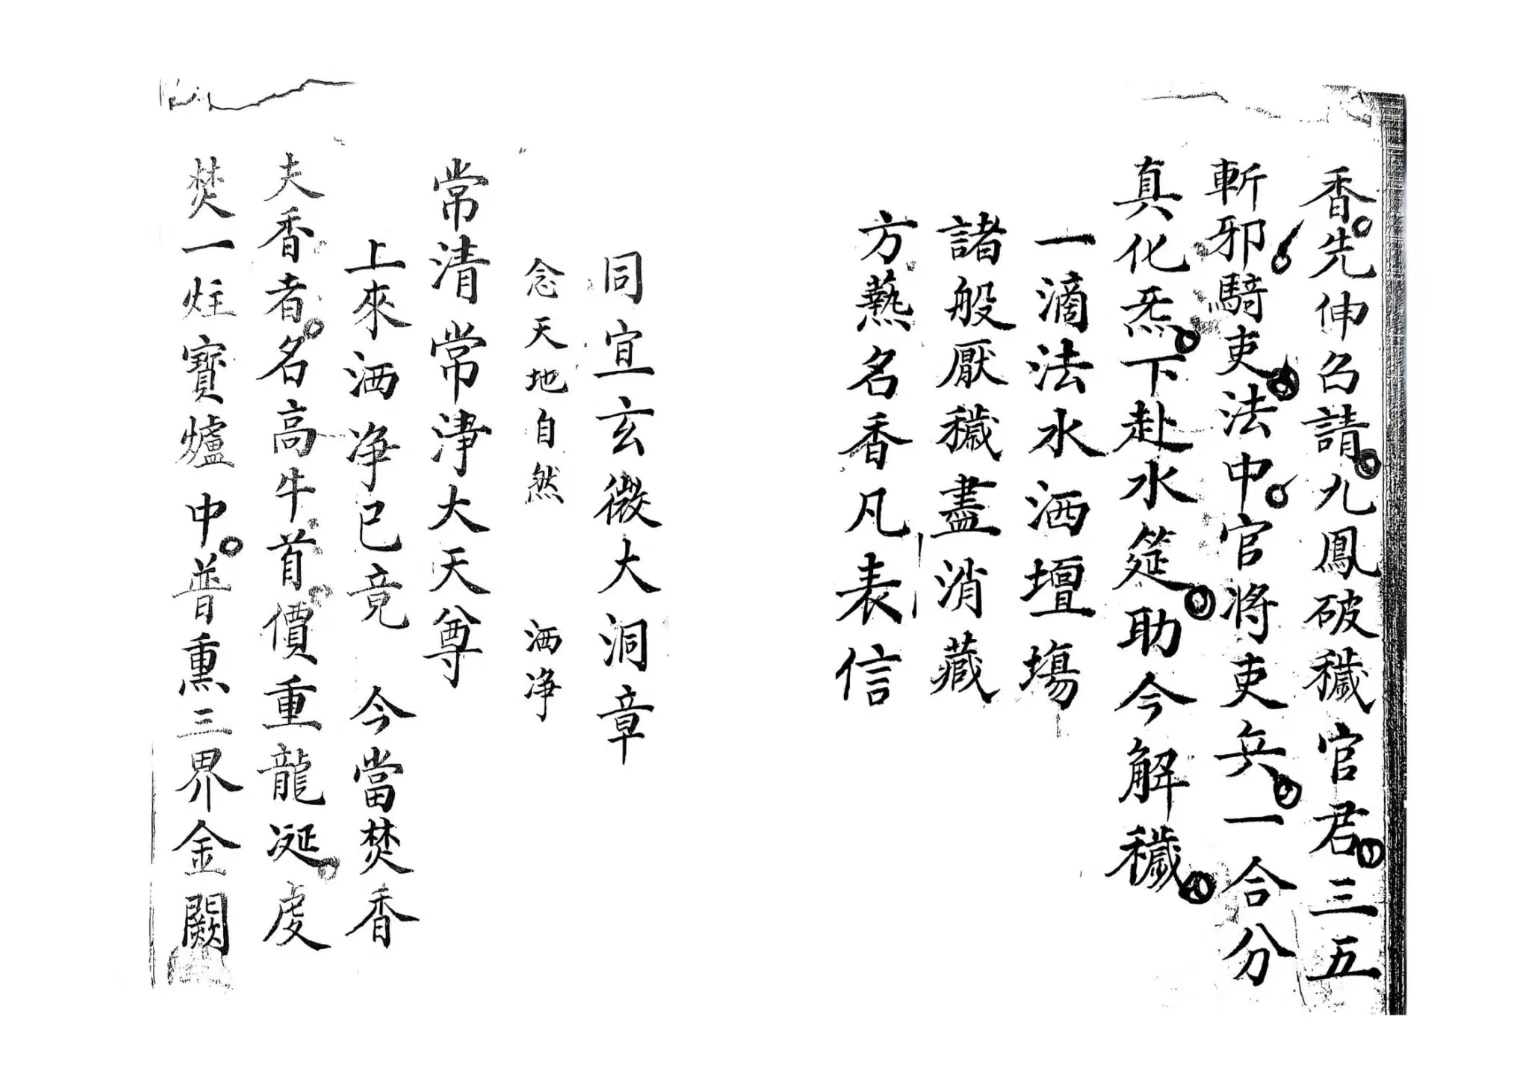 香先伸召請九鳳破穢官君三五
斬邪騎吏法中官将吏兵一合分
真化炁下赴水筵助今解穢
一滴法水洒壇場
諸般厭穢盡消藏
方爇名香凡表信
同宣玄微大洞章
念天地自然 洒净
常清常净大天尊
上來洒净已竟 今當焚香
夫香者名高牛首價重龍涎虔
焚一炷寶爐中普熏三界金闕